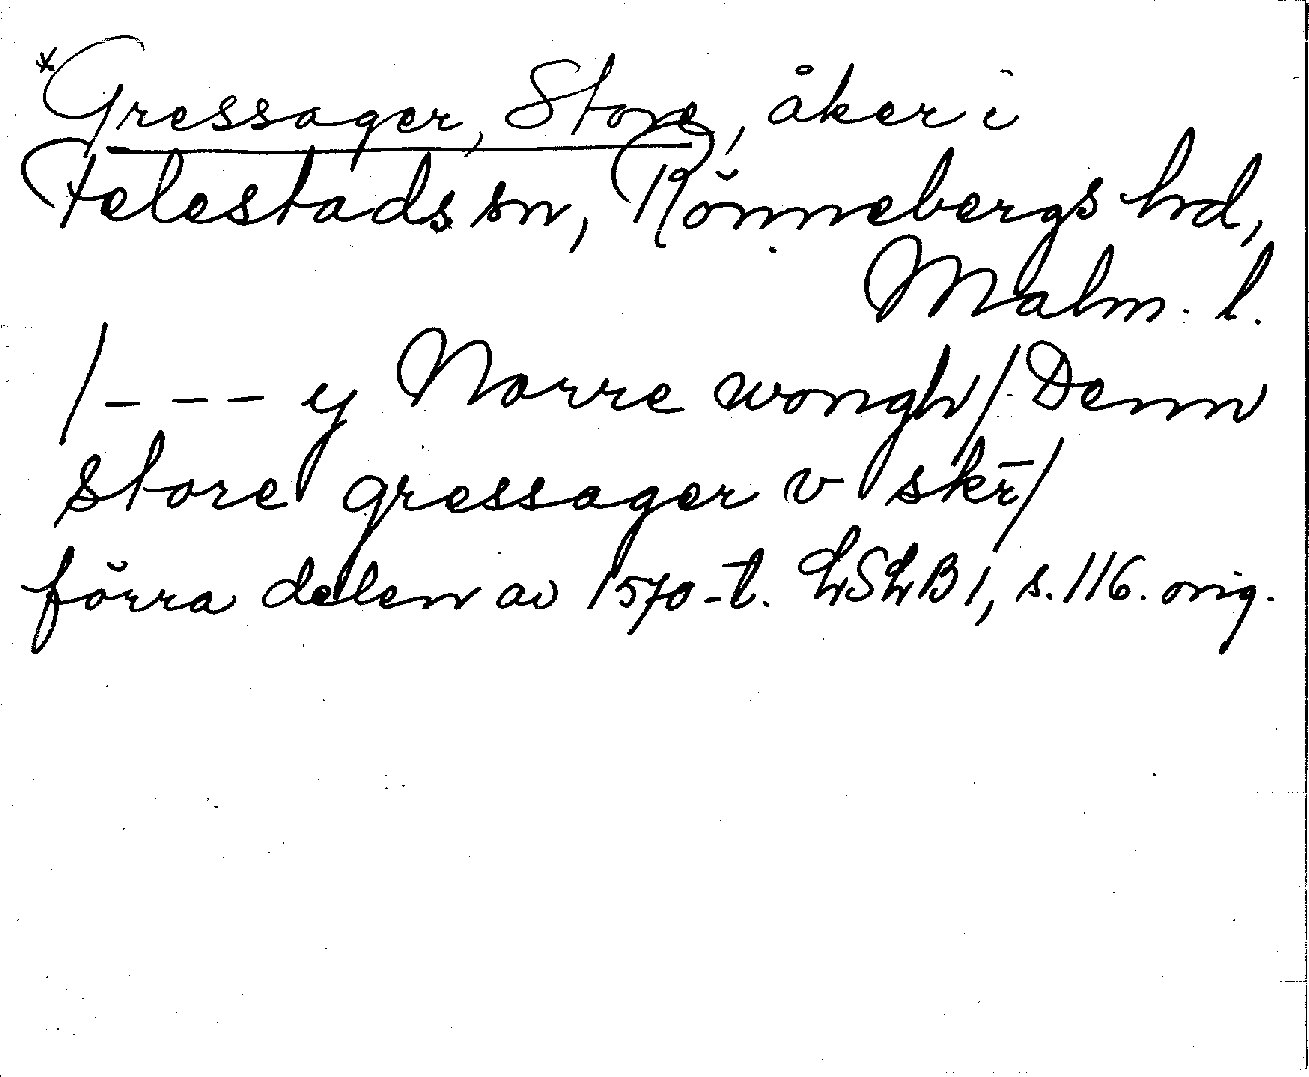 *Gressager, Store, åker i
Felestads sn, Rönnebergs hd,
Malm. l.
/--- y Norre wongh/ Denn
store gressager v skr̄/
förra delen av 1570-t. LSLB 1, s. 116. orig.